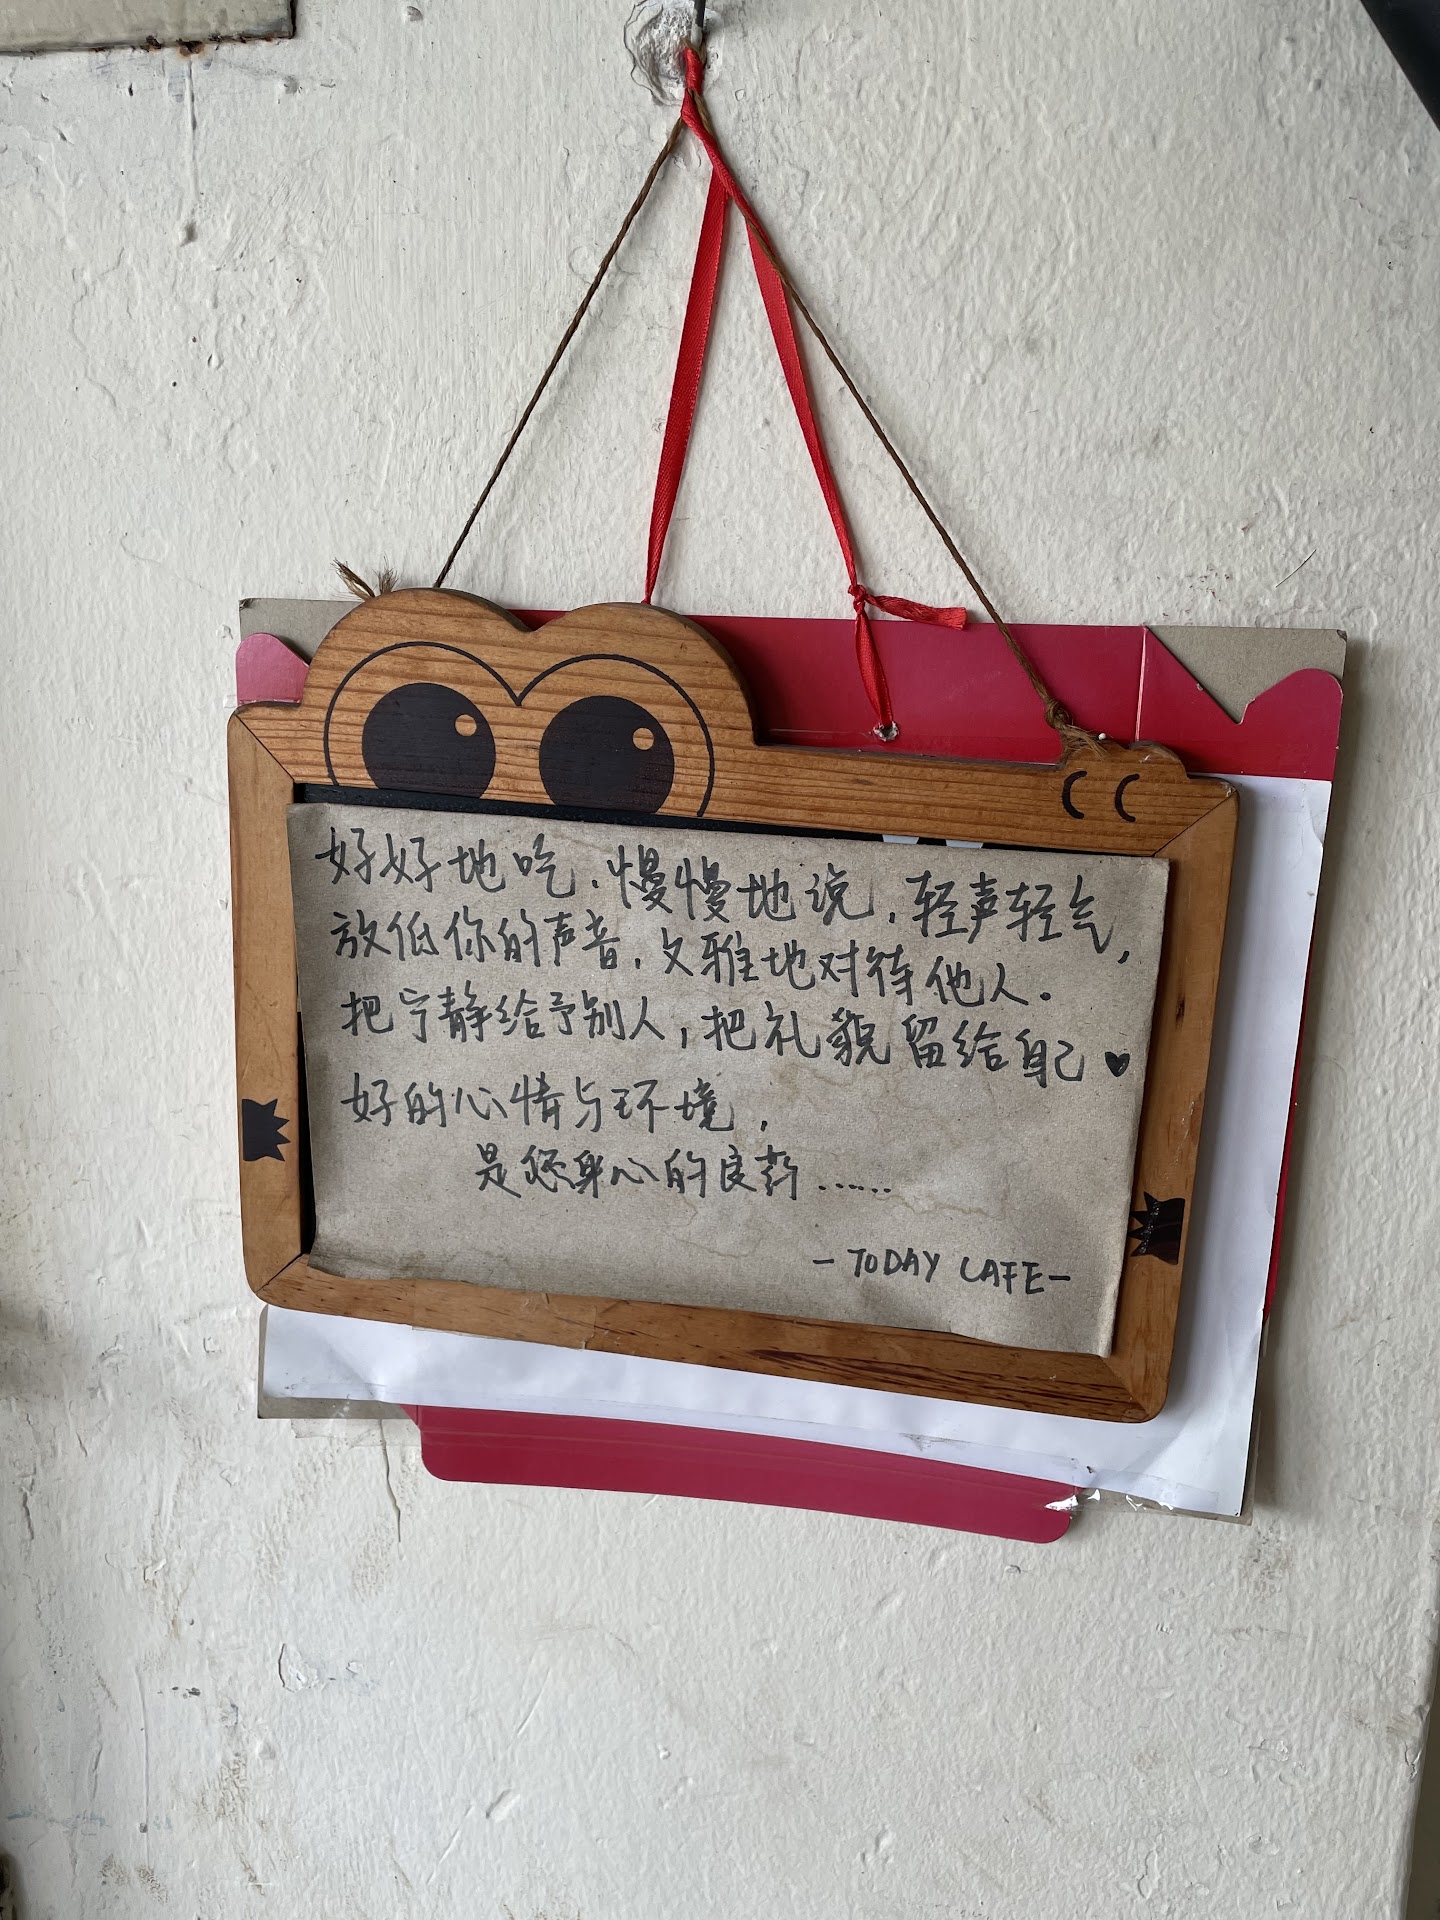 好好地吃，慢慢地说，轻声轻气，
放低你的声音，文雅地对待他人。
把宁静给予别人，把礼貌留给自己♥
好的心情与环境，
是您身心的良药……
-TODAY CAFE-